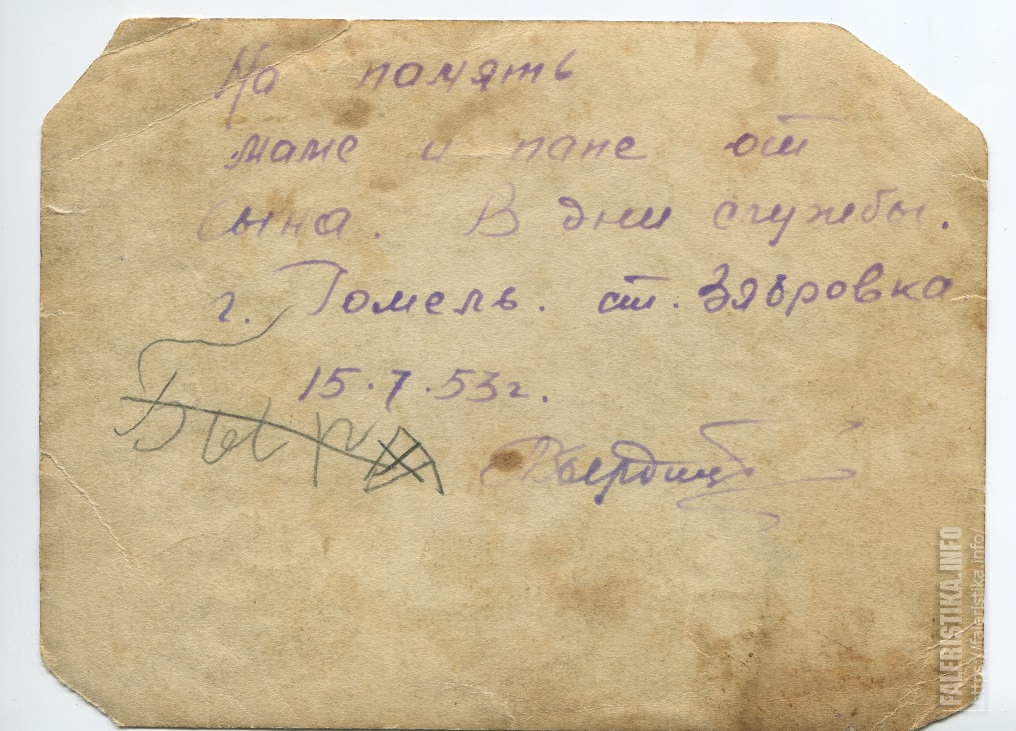 На память
маме и папе от
сына. В дни службы.
г. Гомель. ст. Зябровка
15.7.53г.
FALERISTIKA.INFO
https://faleristika.info/